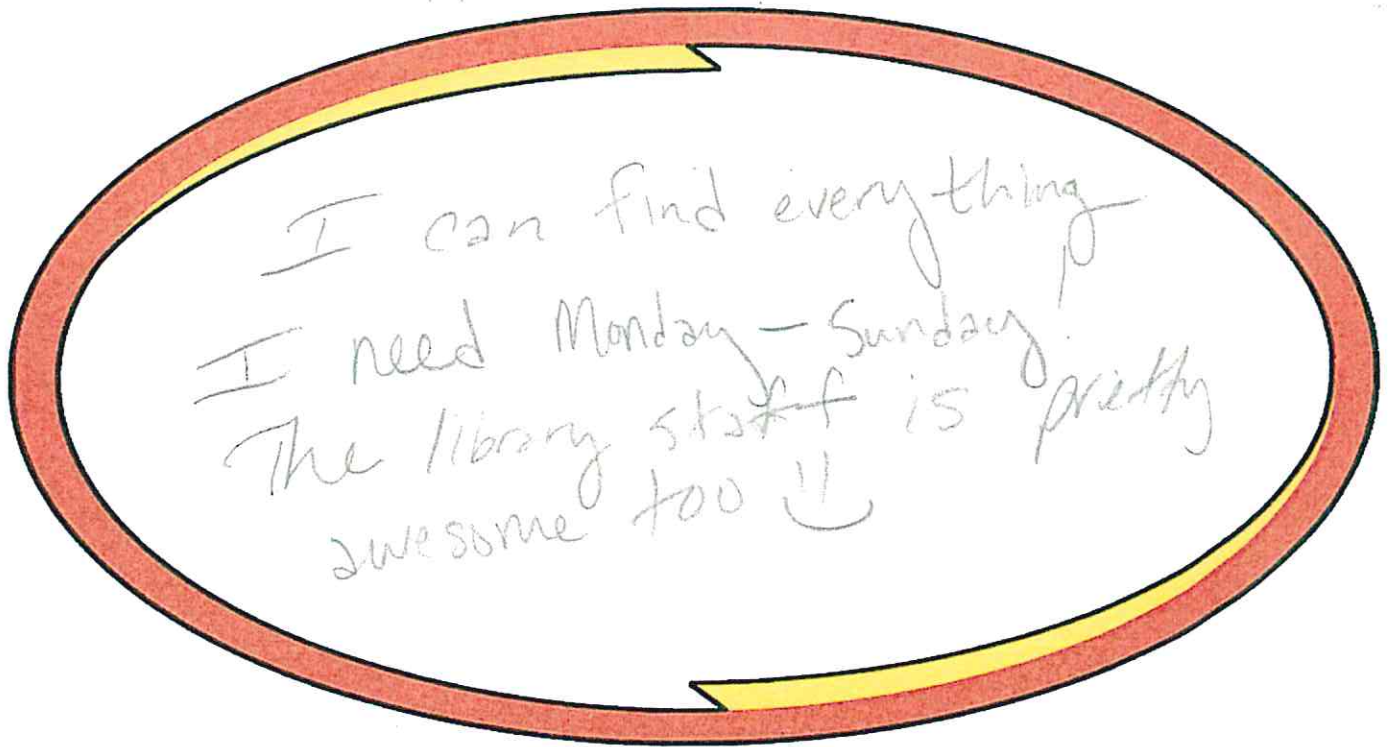 I can find everything
I need Monday - Sunday!
The library staff is pretty
awesome too